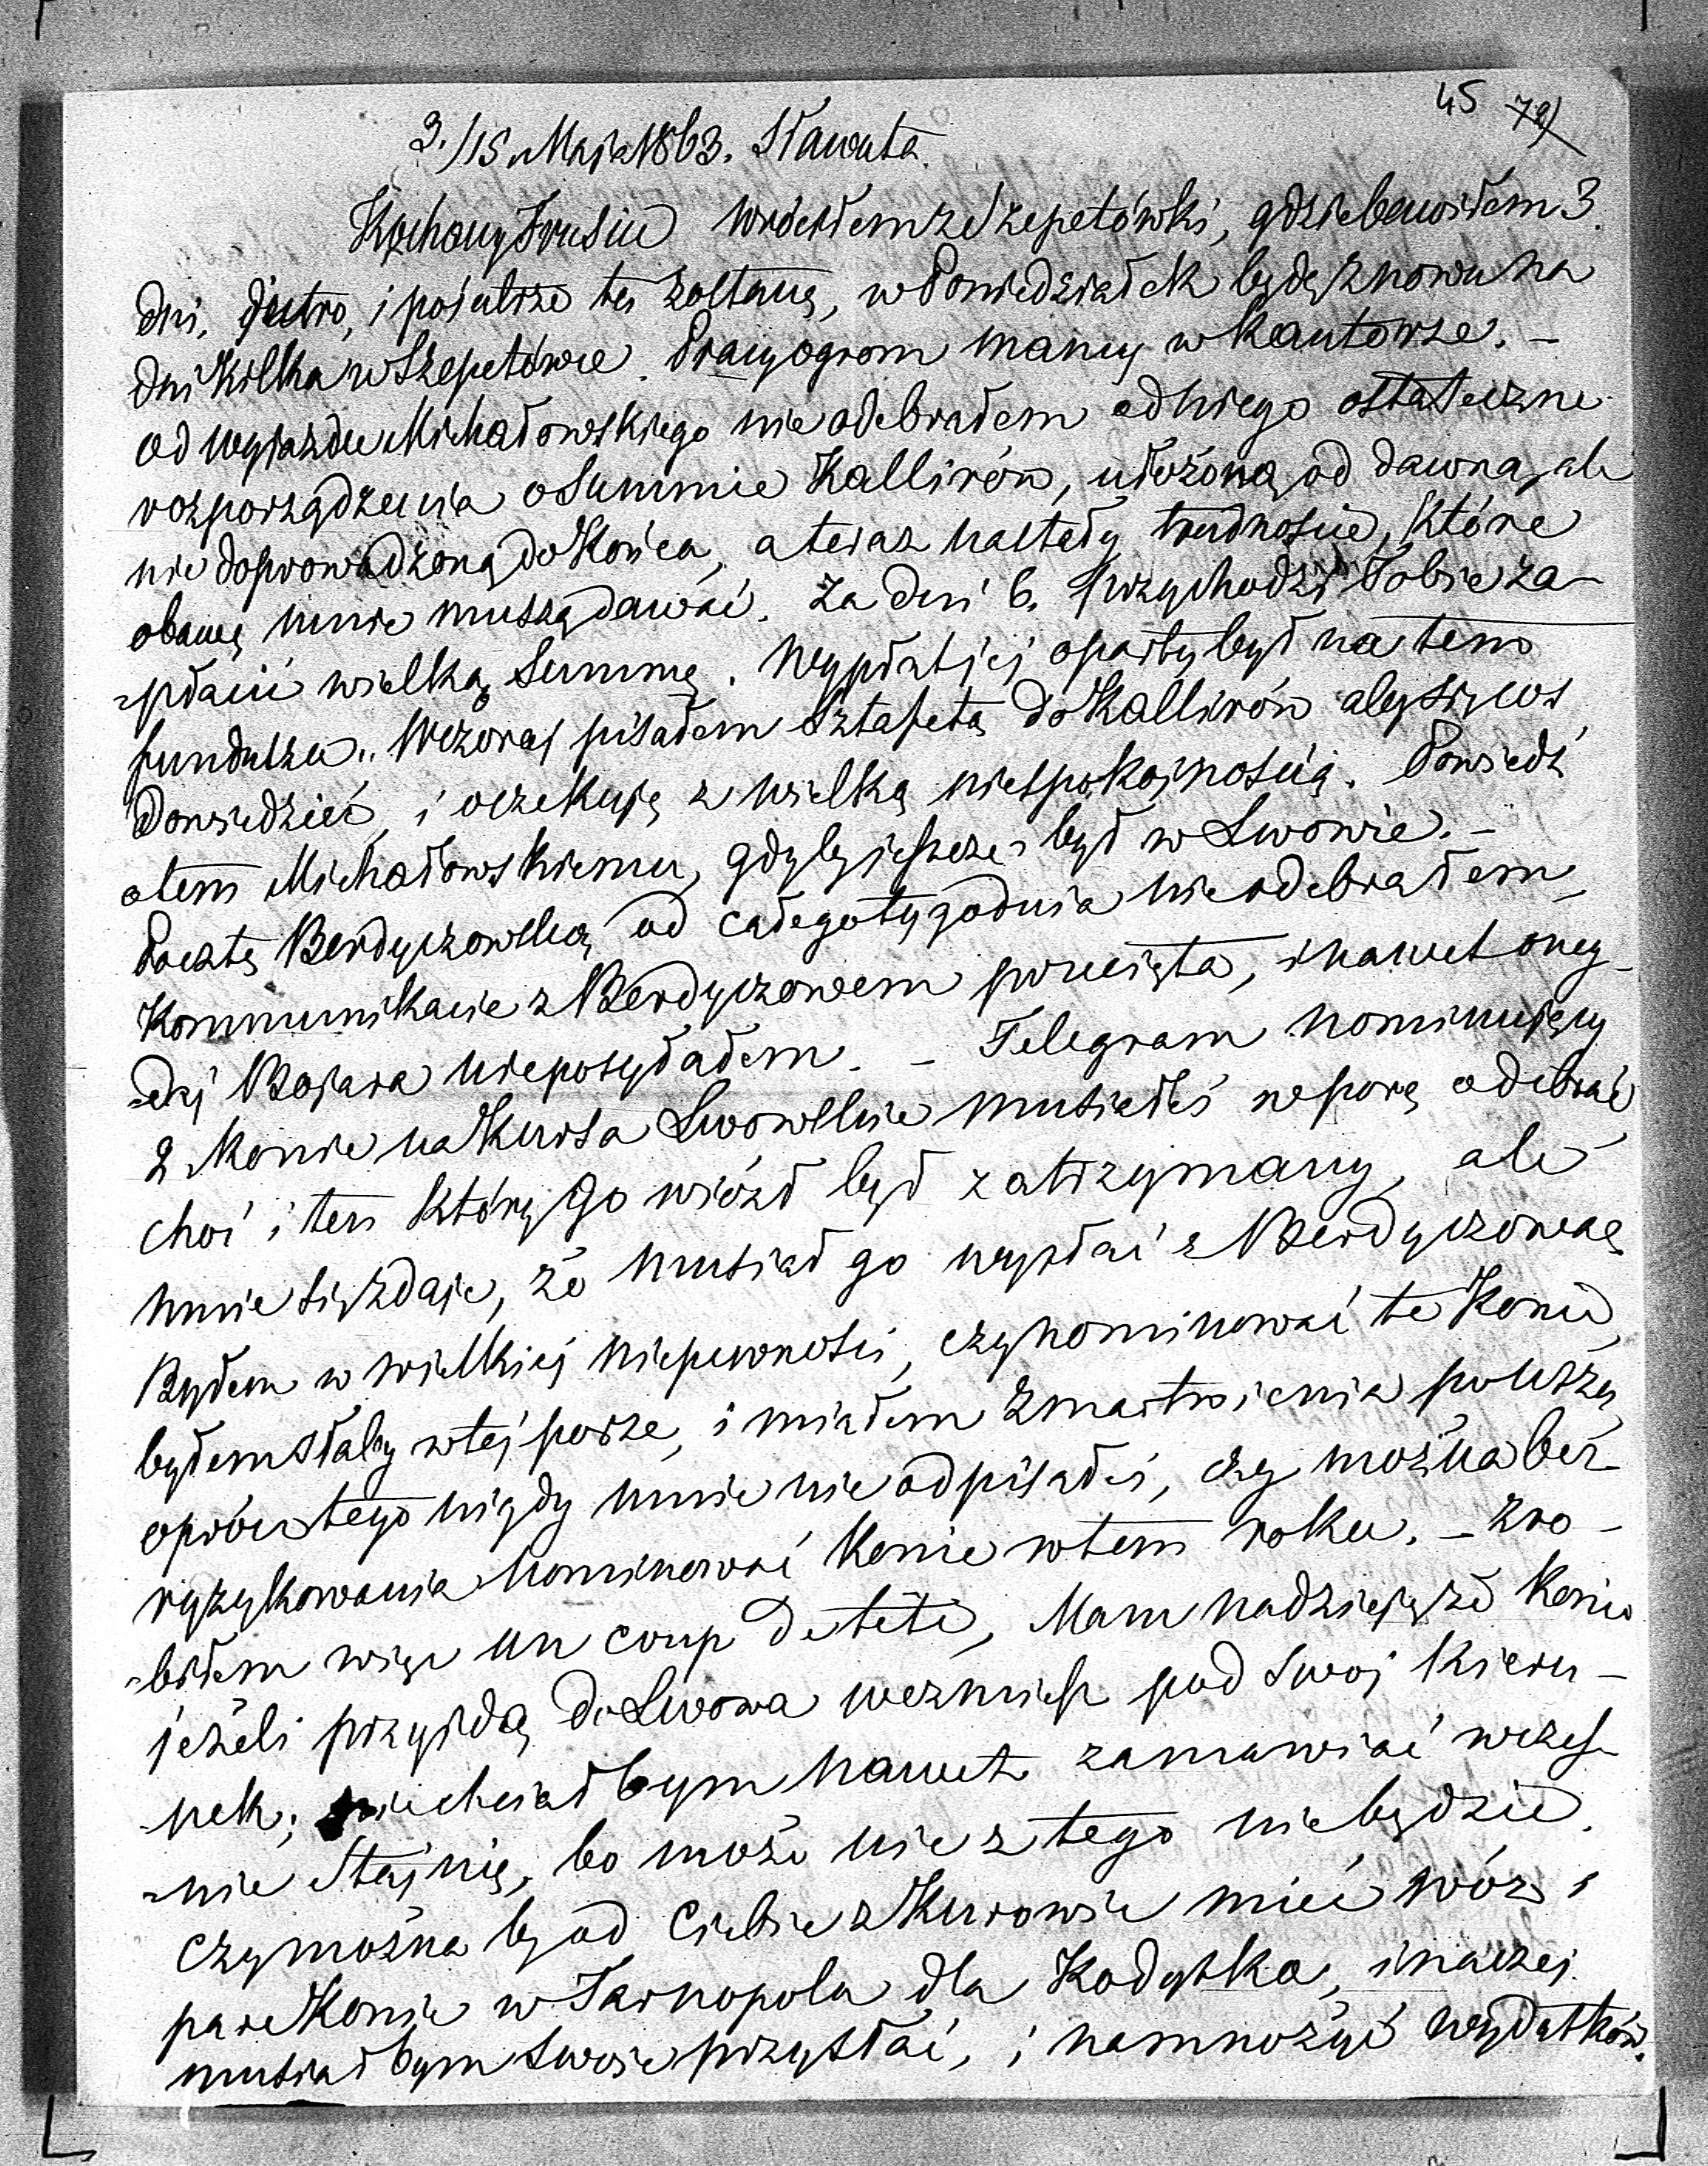 45 79
3./15. Maja 1863. Sławuta.
Kochany Irusiu wróciłem ze Szepetówki, gdzie bawiłem 3.
dni, jutro, i pojutrze tu zostanę, w Poniedziałek będę znowu na
dni kilka w Szepetówce. Pracy ogrom mamy w Kantorze. –
od wyjazdu Michałowskiego nie odebrałem od niego ostateczne
rozporządzenia o Summie Kallirów, ułożoną od dawna, ale
nie doprowadzoną do końca, a teraz nastały trudnoście, które
obawę mnie muszą dawać. Za dni 6. przychodzi Tobie za-
=płacić wielką Summę. Wypłat jej oparty był na tem
funduszu.. Wczoraj pisałem Sztafetą do Kallirów aby się coś
dowiedzieć, i oczekuję z wielką niespokojnością. Powiedź
o tem Michałowskiemu, gdyby jeszcze był w Lwowie. –
Pocztę Berdyczowską od całego tygodnia nie odebrałem,
Kommunikacie z Berdyczowem przecięta, i nawet oneg-
=daj Bojara nie posyłałem. – Telegram nominujący
2 Konie na Kursa Lwowskie musiałeś w porę odebrać
choć i ten który go wiózł był zatrzymany, ale
mnie się zdaje, że musiał go wysłać z Berdyczowa
Byłem w wielkiej niepewności, czy nominować te Konie,
byłem słaby w tej porze, i miałem zmartwienia powszę
oprócz tego nigdy mnie nie odpisałeś, czy można bez
ryzykowania nominować Konie w tem roku. – Zro-
=biłem więc un coup de tête, Mam nadzieję że Konie
jeżeli przyjdą do Lwowa weźmiesz pod swój kieru-
=nek; nie chciałbym nawet zamawiać wcześ-
=nie Stajnię, bo może nic z tego nie będzie.
czy można by od Ciebie z Kurowic mieć wóz i
parę Konie w Tarnopolu dla Kodyłka, inaczej
musiałbym swoje przysłać, i namnożyć wydatków.